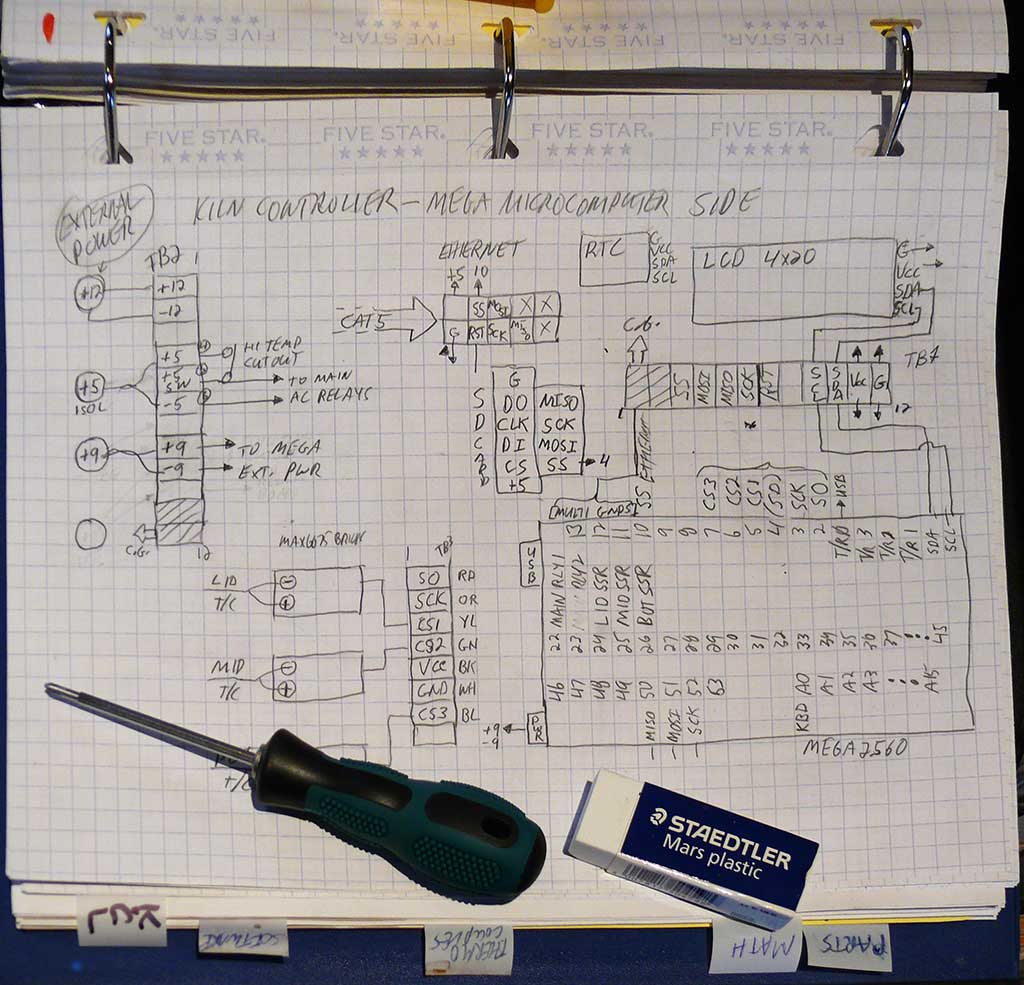 FIVE STAR.
FIVE STAR.
FIVE STAR.
FIVE STAR.
FIVE STAR.
FIVE STAR.
FIVE STAR.
FIVE STAR.
KILN CONTROLLER - MEGA MICROCOMPUTER SIDE
EXTERNAL
POWER
TB2 1
+12
+12
-12
+5
ISOL
+5
+5
SW
-5
HI TEMP
CUTOUT
TO MAIN
AC RELAYS
+9
+9
-9
TO MEGA
EXT. PWR
12
ETHERNET
+5 10
CAT5
SS MOSI X X
G RST SCK MISO X
RTC
G
VCC
SDA
SCL
LCD 4x20
G
VCC
SDA
SCL
TB7
1
SS
MOSI
MISO
SCK
RST
SCL
SDA
VCC
G
12
SD CARD
G
DO MISO
CLK SCK
DI MOSI
CS SS 4
+5
[MULTI GNDS]
SS ETHERNET
CS3
CS2
CS1
(SD)
SCK
SO
USB
USB
13
12
11
10
9
8
7
6
5
4
3
2
SDA
SCL
22 MAIN RLY1
23 RLY2
24 LID SSR
25 MID SSR
26 BOT SSR
27
28
29
30
31
32
33
34
35
36
37
45
46
47
48
49
50 - MISO
51 - MOSI
52 - SCK
53
KBD A0
A1
A2
A3
A15
+9
-9
PWR
MEGA 2560
MAX6675 BRK
LID
T/C
MID
T/C
T/C
1 TB3
SO RD
SCK OR
CS1 YL
CS2 GN
VCC BK
GND WH
CS3 BL
STAEDTLER
Mars plastic
SOFTWARE
THERMO
COUPLES
MATH
PARTS